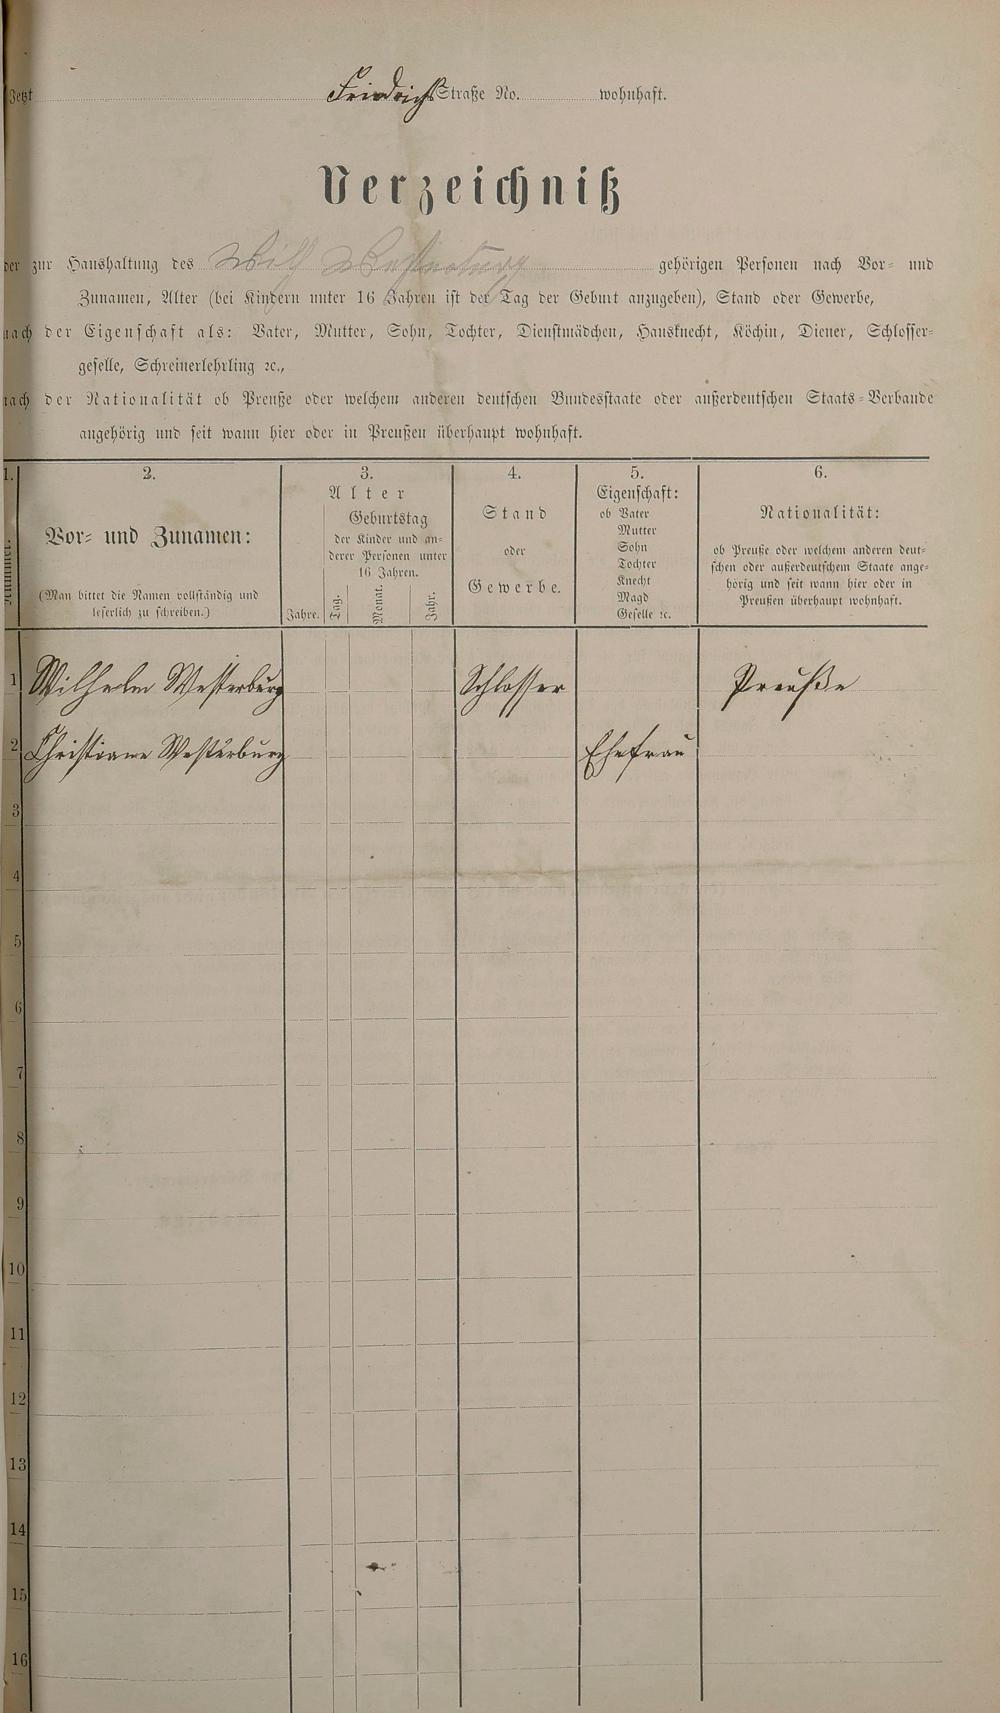 Jetzt Friedrichs Straße No. wohnhaft.
Verzeichniß
der zur Haushaltung des Wilh Westerburg gehörigen Personen nach Vor- und
Zunamen, Alter (bei Kindern unter 16 Jahren ist der Tag der Geburt anzugeben), Stand oder Gewerbe,
nach der Eigenschaft als: Vater, Mutter, Sohn, Tochter, Dienstmädchen, Hausknecht, Köchin, Diener, Schlosser-
geselle, Schreinerlehrling ꝛc.,
nach der Nationalität ob Preuße oder welchem anderen deutschen Bundesstaate oder außerdeutschen Staats-Verbande
angehörig und seit wann hier oder in Preußen überhaupt wohnhaft.
1. 2. 3. 4. 5. 6.
Nummer.
Vor- und Zunamen:
(Man bittet die Namen vollständig und
leserlich zu schreiben.)
Alter
Jahre.
Geburtstag
der Kinder und an-
derer Personen unter
16 Jahren.
Tag. Monat. Jahr.
Stand
oder
Gewerbe.
Eigenschaft:
ob Vater
Mutter
Sohn
Tochter
Knecht
Magd
Geselle ꝛc.
Nationalität:
ob Preuße oder welchem anderen deut-
schen oder außerdeutschem Staate ange-
hörig und seit wann hier oder in
Preußen überhaupt wohnhaft.
1 Wilhelm Westerburg Schlosser Preuße
2 Christiane Westerburg Ehefrau
3
4
5
6
7
8
9
10
11
12
13
14
15
16